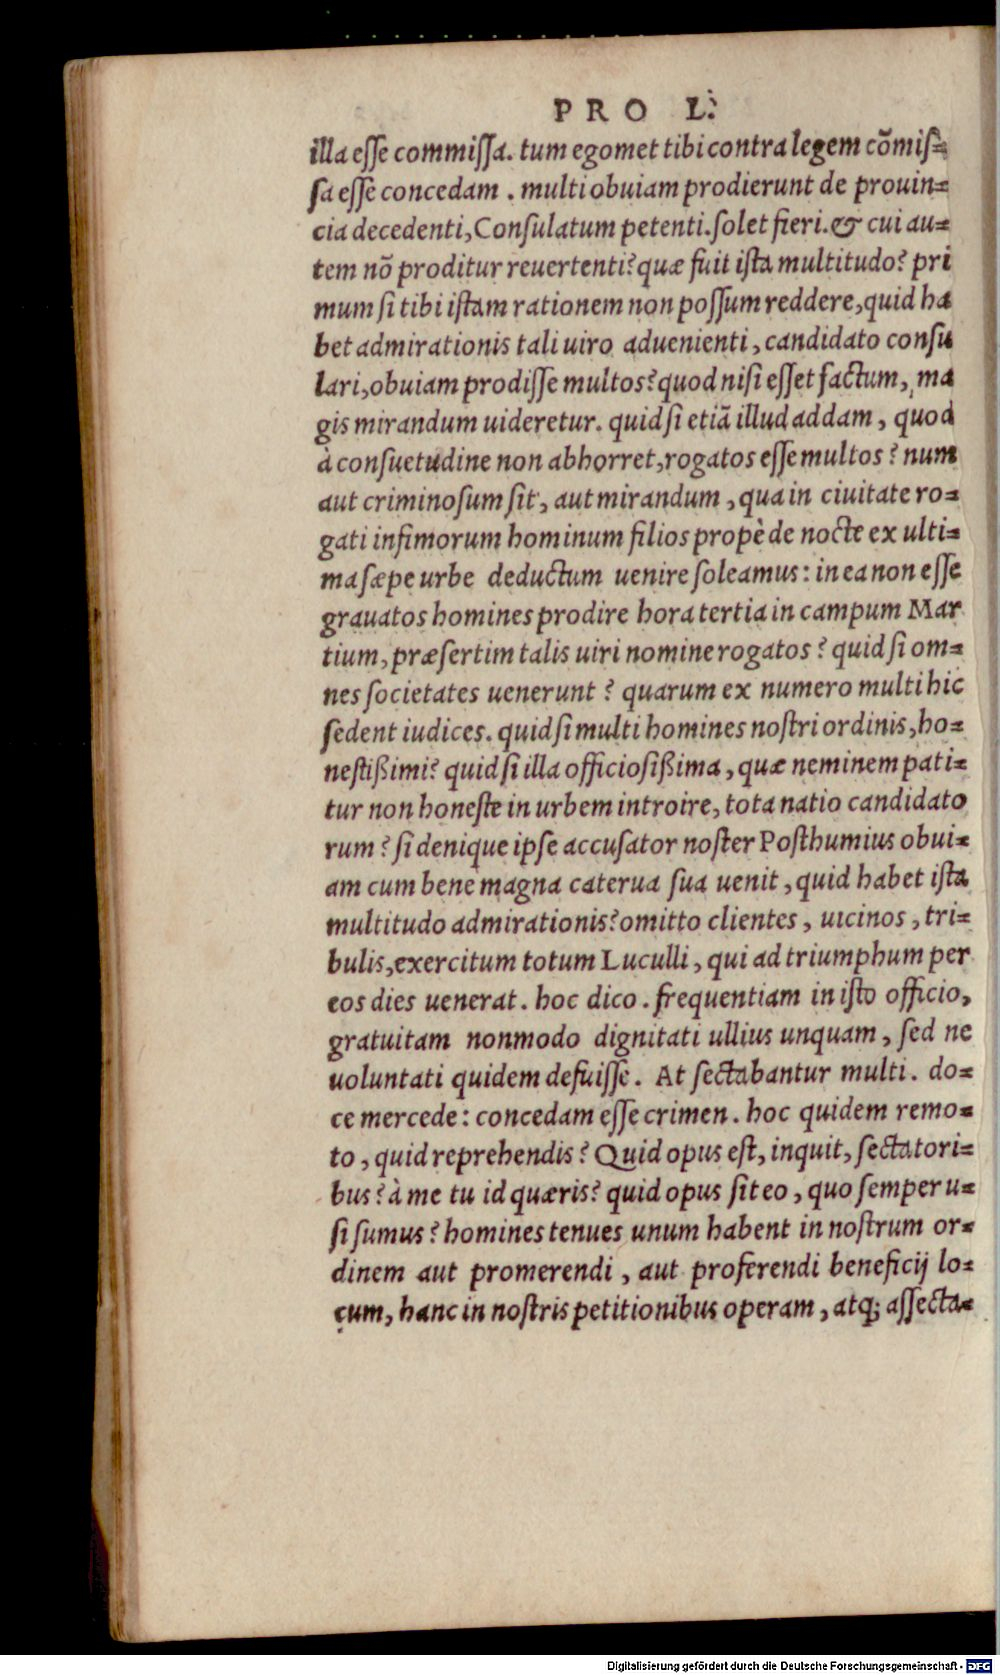 PRO L.
illa esse commissa. tum egomet tibi contra legem cõmis=
sa esse concedam . multi obuiam prodierunt de prouin=
cia decedenti, Consulatum petenti. solet fieri. & cui au=
tem nõ proditur reuertenti? quæ fuit ista multitudo? pri
mum si tibi istam rationem non possum reddere, quid ha
bet admirationis tali uiro aduenienti , candidato consu
lari, obuiam prodisse multos? quod nisi esset factum, ma
gis mirandum uideretur. quid si etiã illud addam , quod
à consuetudine non abhorret, rogatos esse multos ? num
aut criminosum sit , aut mirandum , qua in ciuitate ro=
gati infimorum hominum filios propè de nocte ex ulti=
ma sæpe urbe deductum uenire soleamus : in ea non esse
grauatos homines prodire hora tertia in campum Mar
tium, præsertim talis uiri nomine rogatos ? quid si om=
nes societates uenerunt ? quarum ex numero multi hic
sedent iudices. quid si multi homines nostri ordinis, ho=
nestißimi? quid si illa officiosißima , quæ neminem pati=
tur non honeste in urbem introire, tota natio candidato
rum ? si denique ipse accusator noster Posthumius obui=
am cum bene magna caterua sua uenit , quid habet ista
multitudo admirationis? omitto clientes , uicinos , tri=
bulis, exercitum totum Luculli , qui ad triumphum per
eos dies uenerat . hoc dico . frequentiam in isto officio,
gratuitam nonmodo dignitati ullius unquam , sed ne
uoluntati quidem defuisse . At sectabantur multi . do=
ce mercede : concedam esse crimen . hoc quidem remo=
to , quid reprehendis ? Quid opus est, inquit, sectatori=
bus ? à me tu id quæris? quid opus sit eo , quo semper u=
si sumus ? homines tenues unum habent in nostrum or=
dinem aut promerendi , aut proferendi beneficij lo=
cum, hanc in nostris petitionibus operam , atq; assecta=
Digitalisierung gefördert durch die Deutsche Forschungsgemeinschaft - DFG